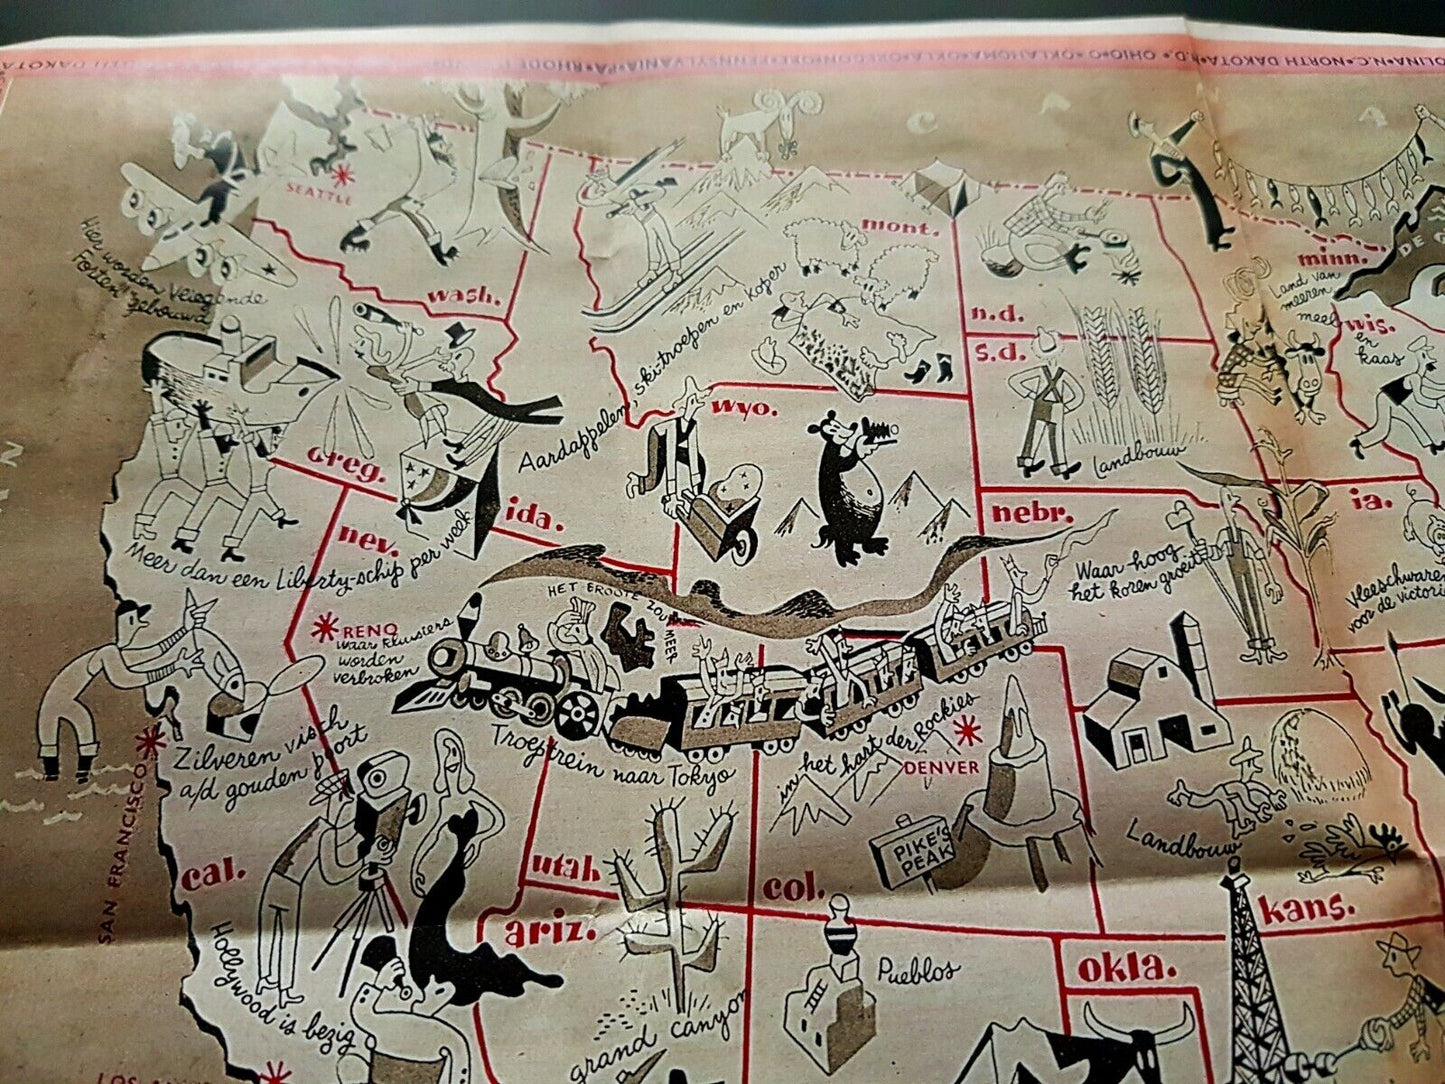 OLINA•N.C•NORTH DAKOTA•N.D • OHIO•O•OKLAHOMA•OKLA•OREGON•ORE•PENNSYLVANIA•PA•RHODE
SEATTLE
Hier worden vliegende
Forten gebouwd
wash.
mont.
n.d.
s.d.
minn.
Land van
meeren
wis.
en
kaas
DE
oreg.
Aardappelen, skitroepen en koper
wyo.
Landbouw
ida.
nev.
nebr.
ia.
Meer dan een Liberty-schip per week
Waar hoog
het koren groeit
vleeschwaren
voor de victori
HET GROOTE ZOUTMEER
RENO
waar kluisters
worden
verbroken
Zilveren visch
a/d gouden poort
Troeptrein naar Tokyo
in het hart der Rockies
DENVER
SAN FRANCISCO
PIKE'S
PEAK
Landbouw
cal.
utah
col.
kans.
ariz.
Hollywood is bezig
Pueblos
okla.
grand canyon